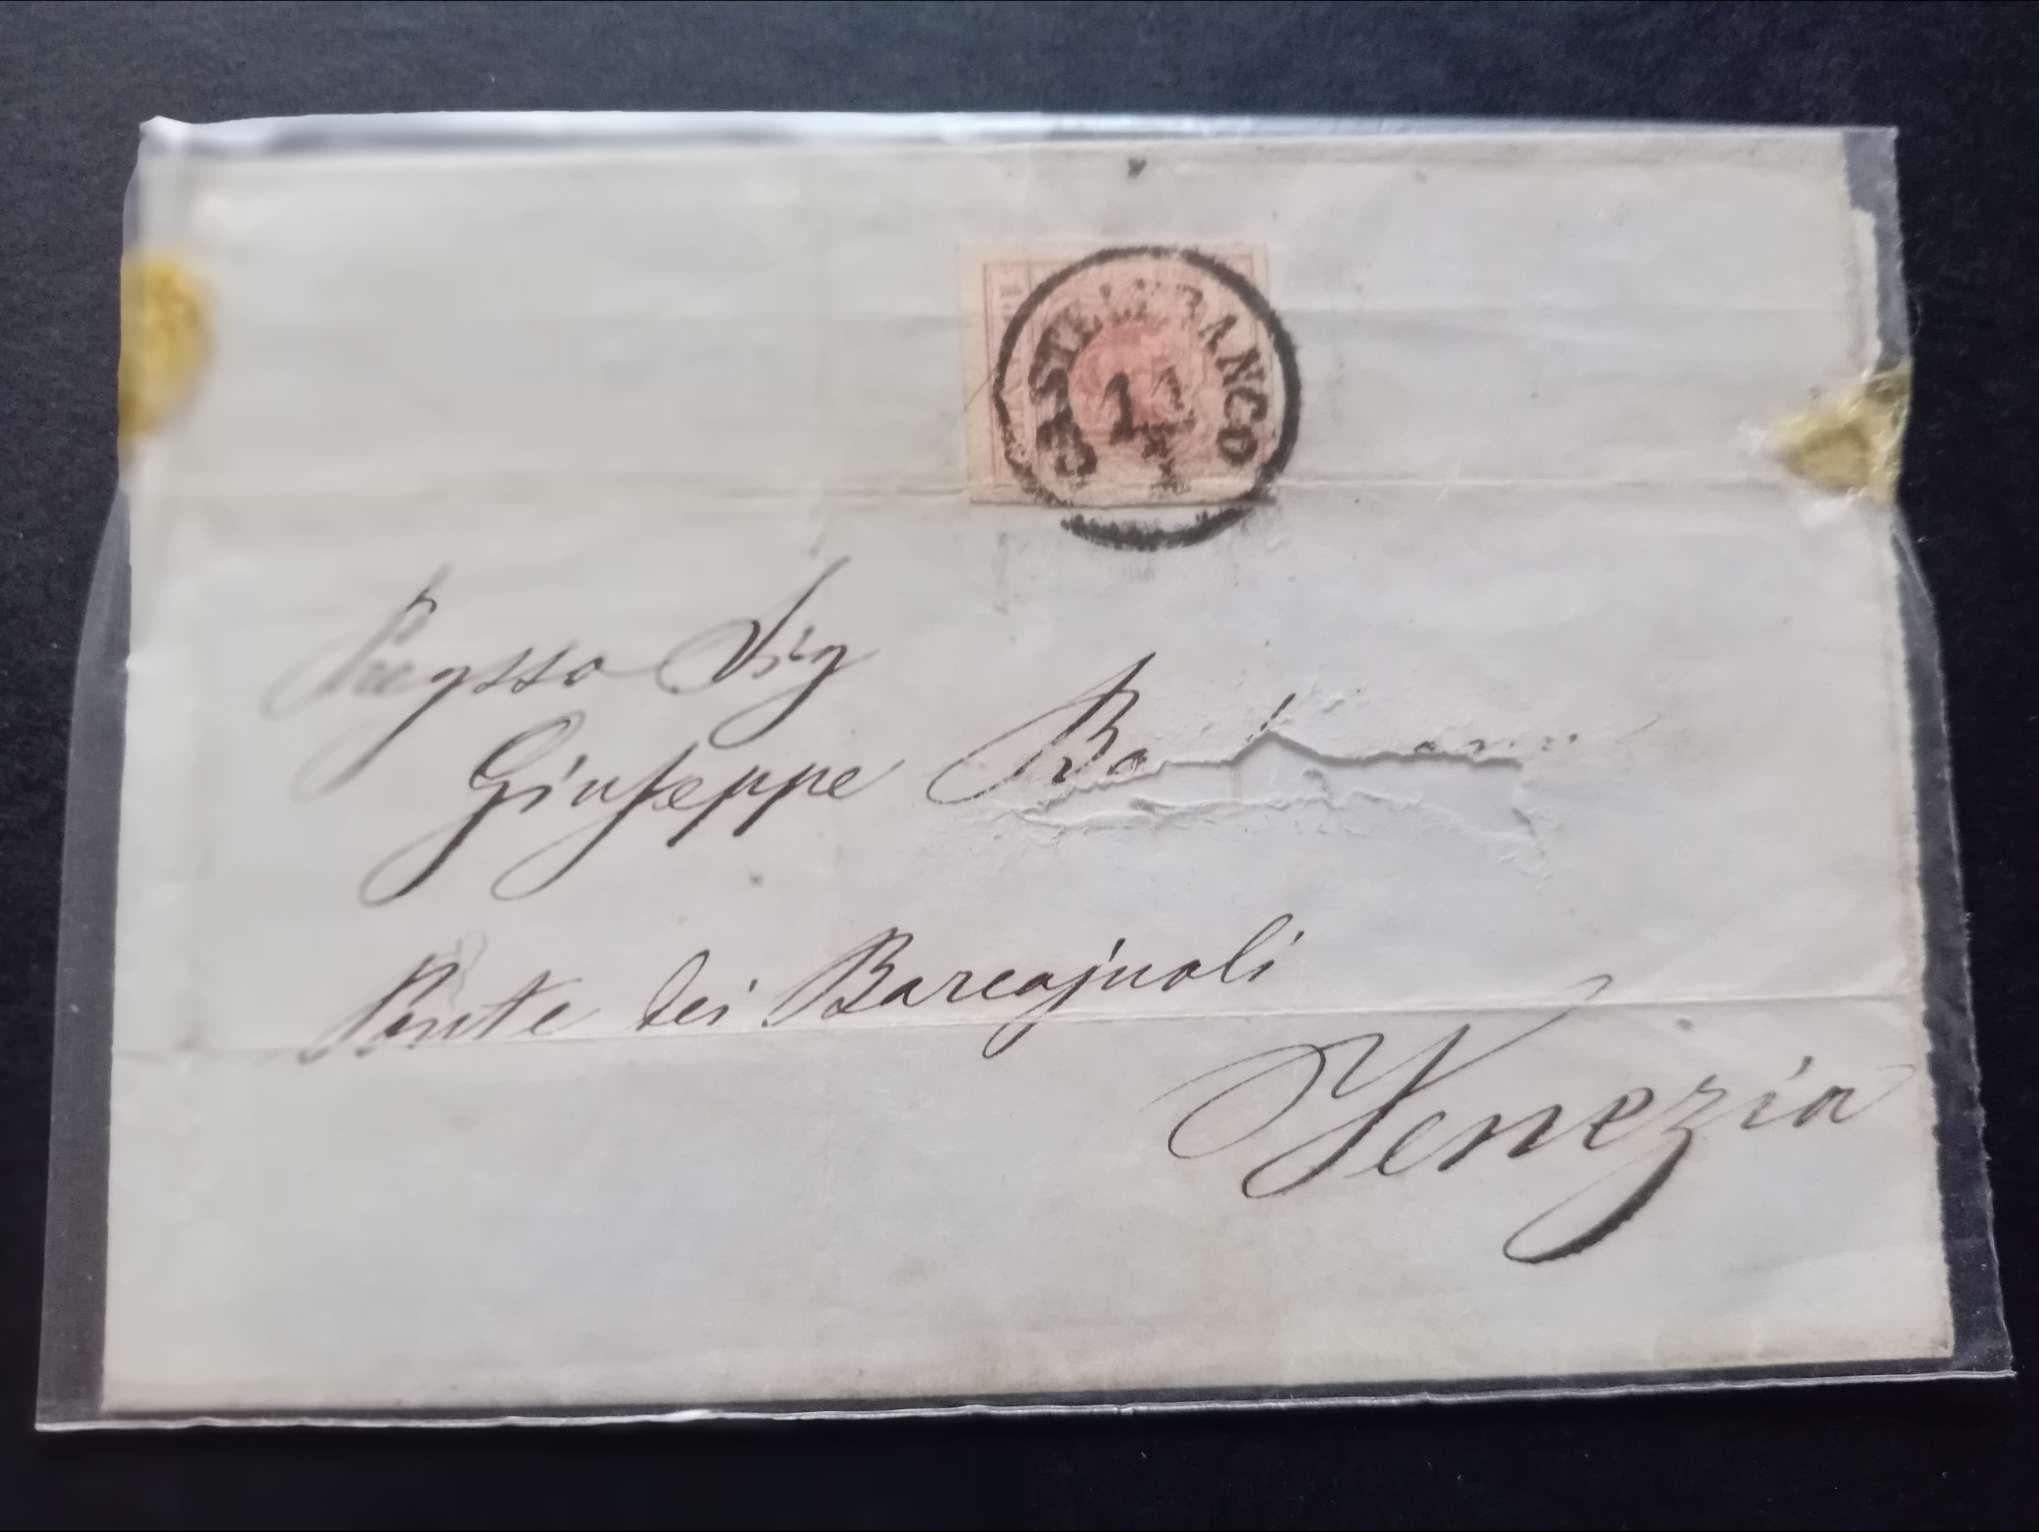 CASTELFRANCO
Pregsso Sig
Giuseppe
Ponte dei Barcajuoli
Venezia